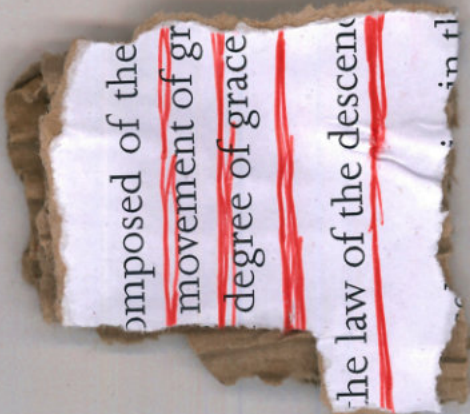 omposed of the
movement of gr
degree of grace
he law of the descen
in t